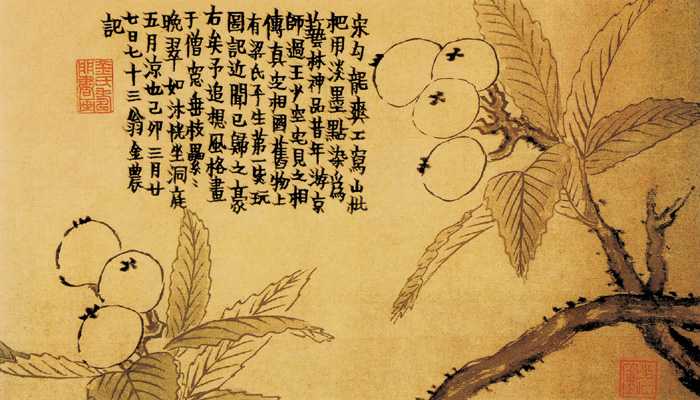 宋勾龍爽工寫山枇
杷用淡墨點染爲
藝林神品昔年游京
師過王少空宅見之相
傳真定相國舊物上
有梁氏平生第一寶玩
圖記近聞已歸之豪
右矣予追想風格畫
于僧窓垂枝纍〻
晚翠如沐恍坐洞庭
五月涼也己卯三月廿
七日七十三翁金農
記